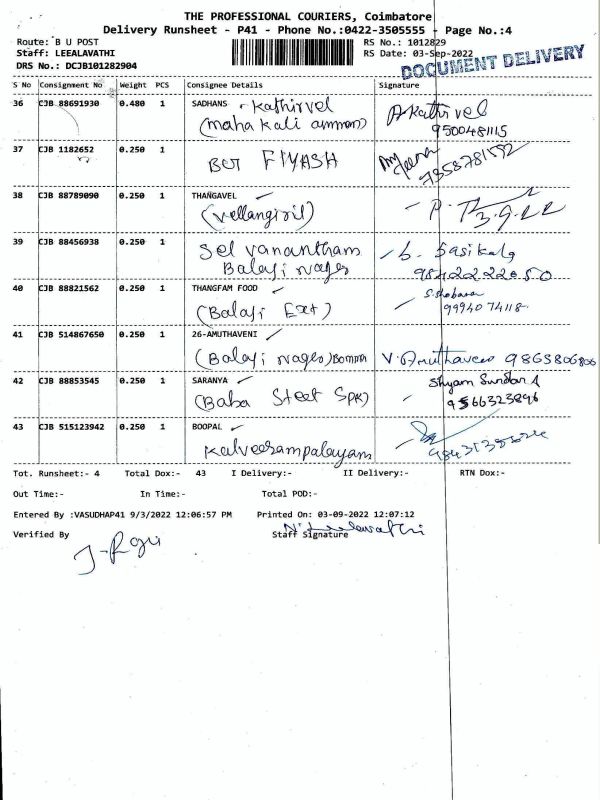 THE PROFESSIONAL COURIERS, Coimbatore
Delivery Runsheet - P41 - Phone No.:0422-3505555 - Page No.:4
Route: B U POST
RS No.: 1012829
Staff: LEEALAVATHI
RS Date: 03-Sep-2022
DRS No.: DCJB101282904
DOCUMENT DELIVERY
S No Consignment No Weight PCS Consignee Details Signature
36 CJB 88691930 0.480 1 SADHANS - Kathirvel
(maha kali amman) A. Kathirvel
9500481115
37 CJB 1182652 0.250 1
BET FIYASH
38 CJB 88789090 0.250 1 THANGAVEL
(vellangiri) 3.9.22
39 CJB 88456938 0.250 1 Selvanantham
Balaji nager S. Sasikala
40 CJB 88821562 0.250 1 THANGFAM FOOD
(Balaji Ext) 9994074118
41 CJB 514867650 0.250 1 26-AMUTHAVENI
(Balaji nager) Bomm V. Amuthaveni 9865806806
42 CJB 88853545 0.250 1 SARANYA Shyam Sundar A
(Baba Steet SPK) 9566323896
43 CJB 515123942 0.250 1 BOOPAL
Kalveerampalayam
Tot. Runsheet:- 4 Total Dox:- 43 I Delivery:- II Delivery:- RTN Dox:-
Out Time:- In Time:- Total POD:-
Entered By :VASUDHAP41 9/3/2022 12:06:57 PM Printed On: 03-09-2022 12:07:12
Verified By Staff Signature
N. Leelavathi